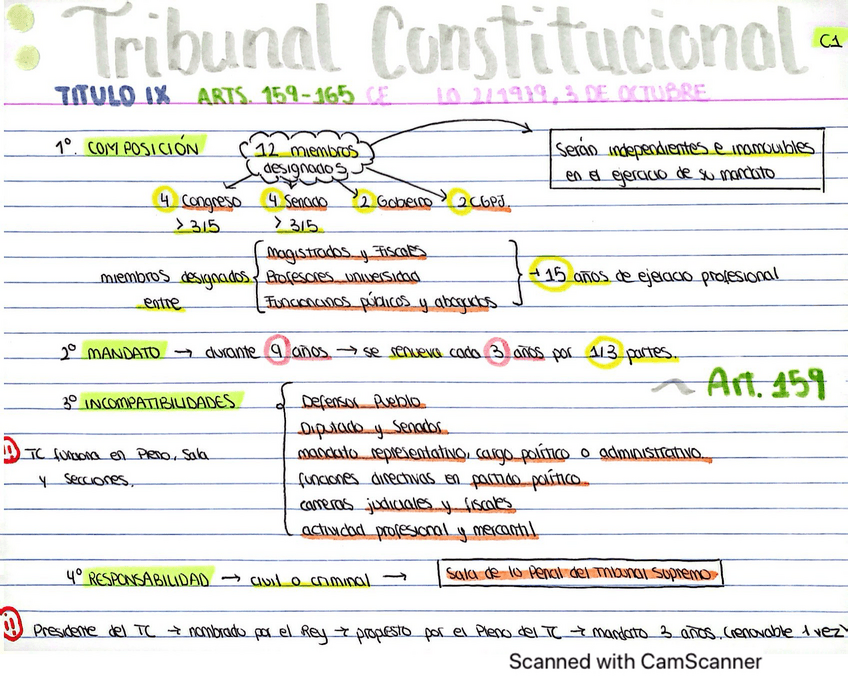 Tribunal Constitucional
C1
TITULO IX ARTS. 159-165 CE LO 2/1979, 3 DE OCTUBRE
1º. COMPOSICIÓN
12 miembros
designados
Serán independientes e inamovibles
en el ejercicio de su mandato
4 Congreso 4 Senado 2 Gobierno 2 CGPJ.
> 3/5 > 3/5
miembros designados
entre
Magistrados y Fiscales
Profesores universidad
Funcionarios públicos y abogados
+15 años de ejercicio profesional
2º MANDATO → durante 9 años → se renueva cada 3 años por 1/3 partes.
Art. 159
3º INCOMPATIBILIDADES
Defensor Pueblo
Diputado y Senador
mandato representativo, cargo político o administrativo.
funciones directivas en partido político
carreras judiciales y fiscales
actividad profesional y mercantil
!! TC funciona en Pleno, Sala
y secciones.
4º RESPONSABILIDAD → civil o criminal → Sala de lo Penal del Tribunal Supremo
!! Presidente del TC → nombrado por el Rey → propuesto por el Pleno del TC → mandato 3 años. (renovable 1 vez)
Scanned with CamScanner